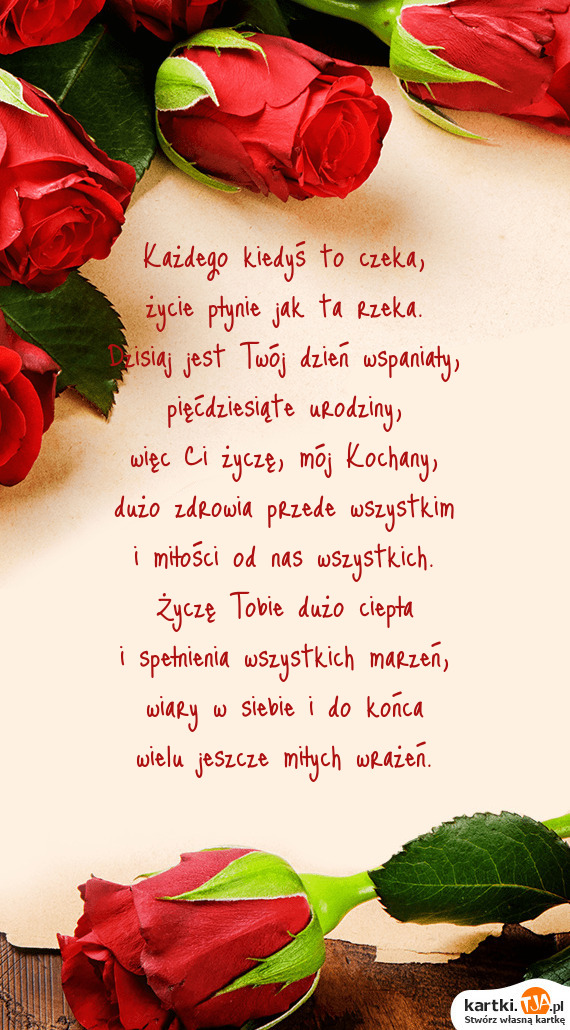 Każdego kiedyś to czeka,
życie płynie jak ta rzeka.
Dzisiaj jest Twój dzień wspaniały,
pięćdziesiąte urodziny,
więc Ci życzę, mój Kochany,
dużo zdrowia przede wszystkim
i miłości od nas wszystkich.
Życzę Tobie dużo ciepła
i spełnienia wszystkich marzeń,
wiary w siebie i do końca
wielu jeszcze miłych wrażeń.
kartki.TJA.pl
Stwórz własną kartkę